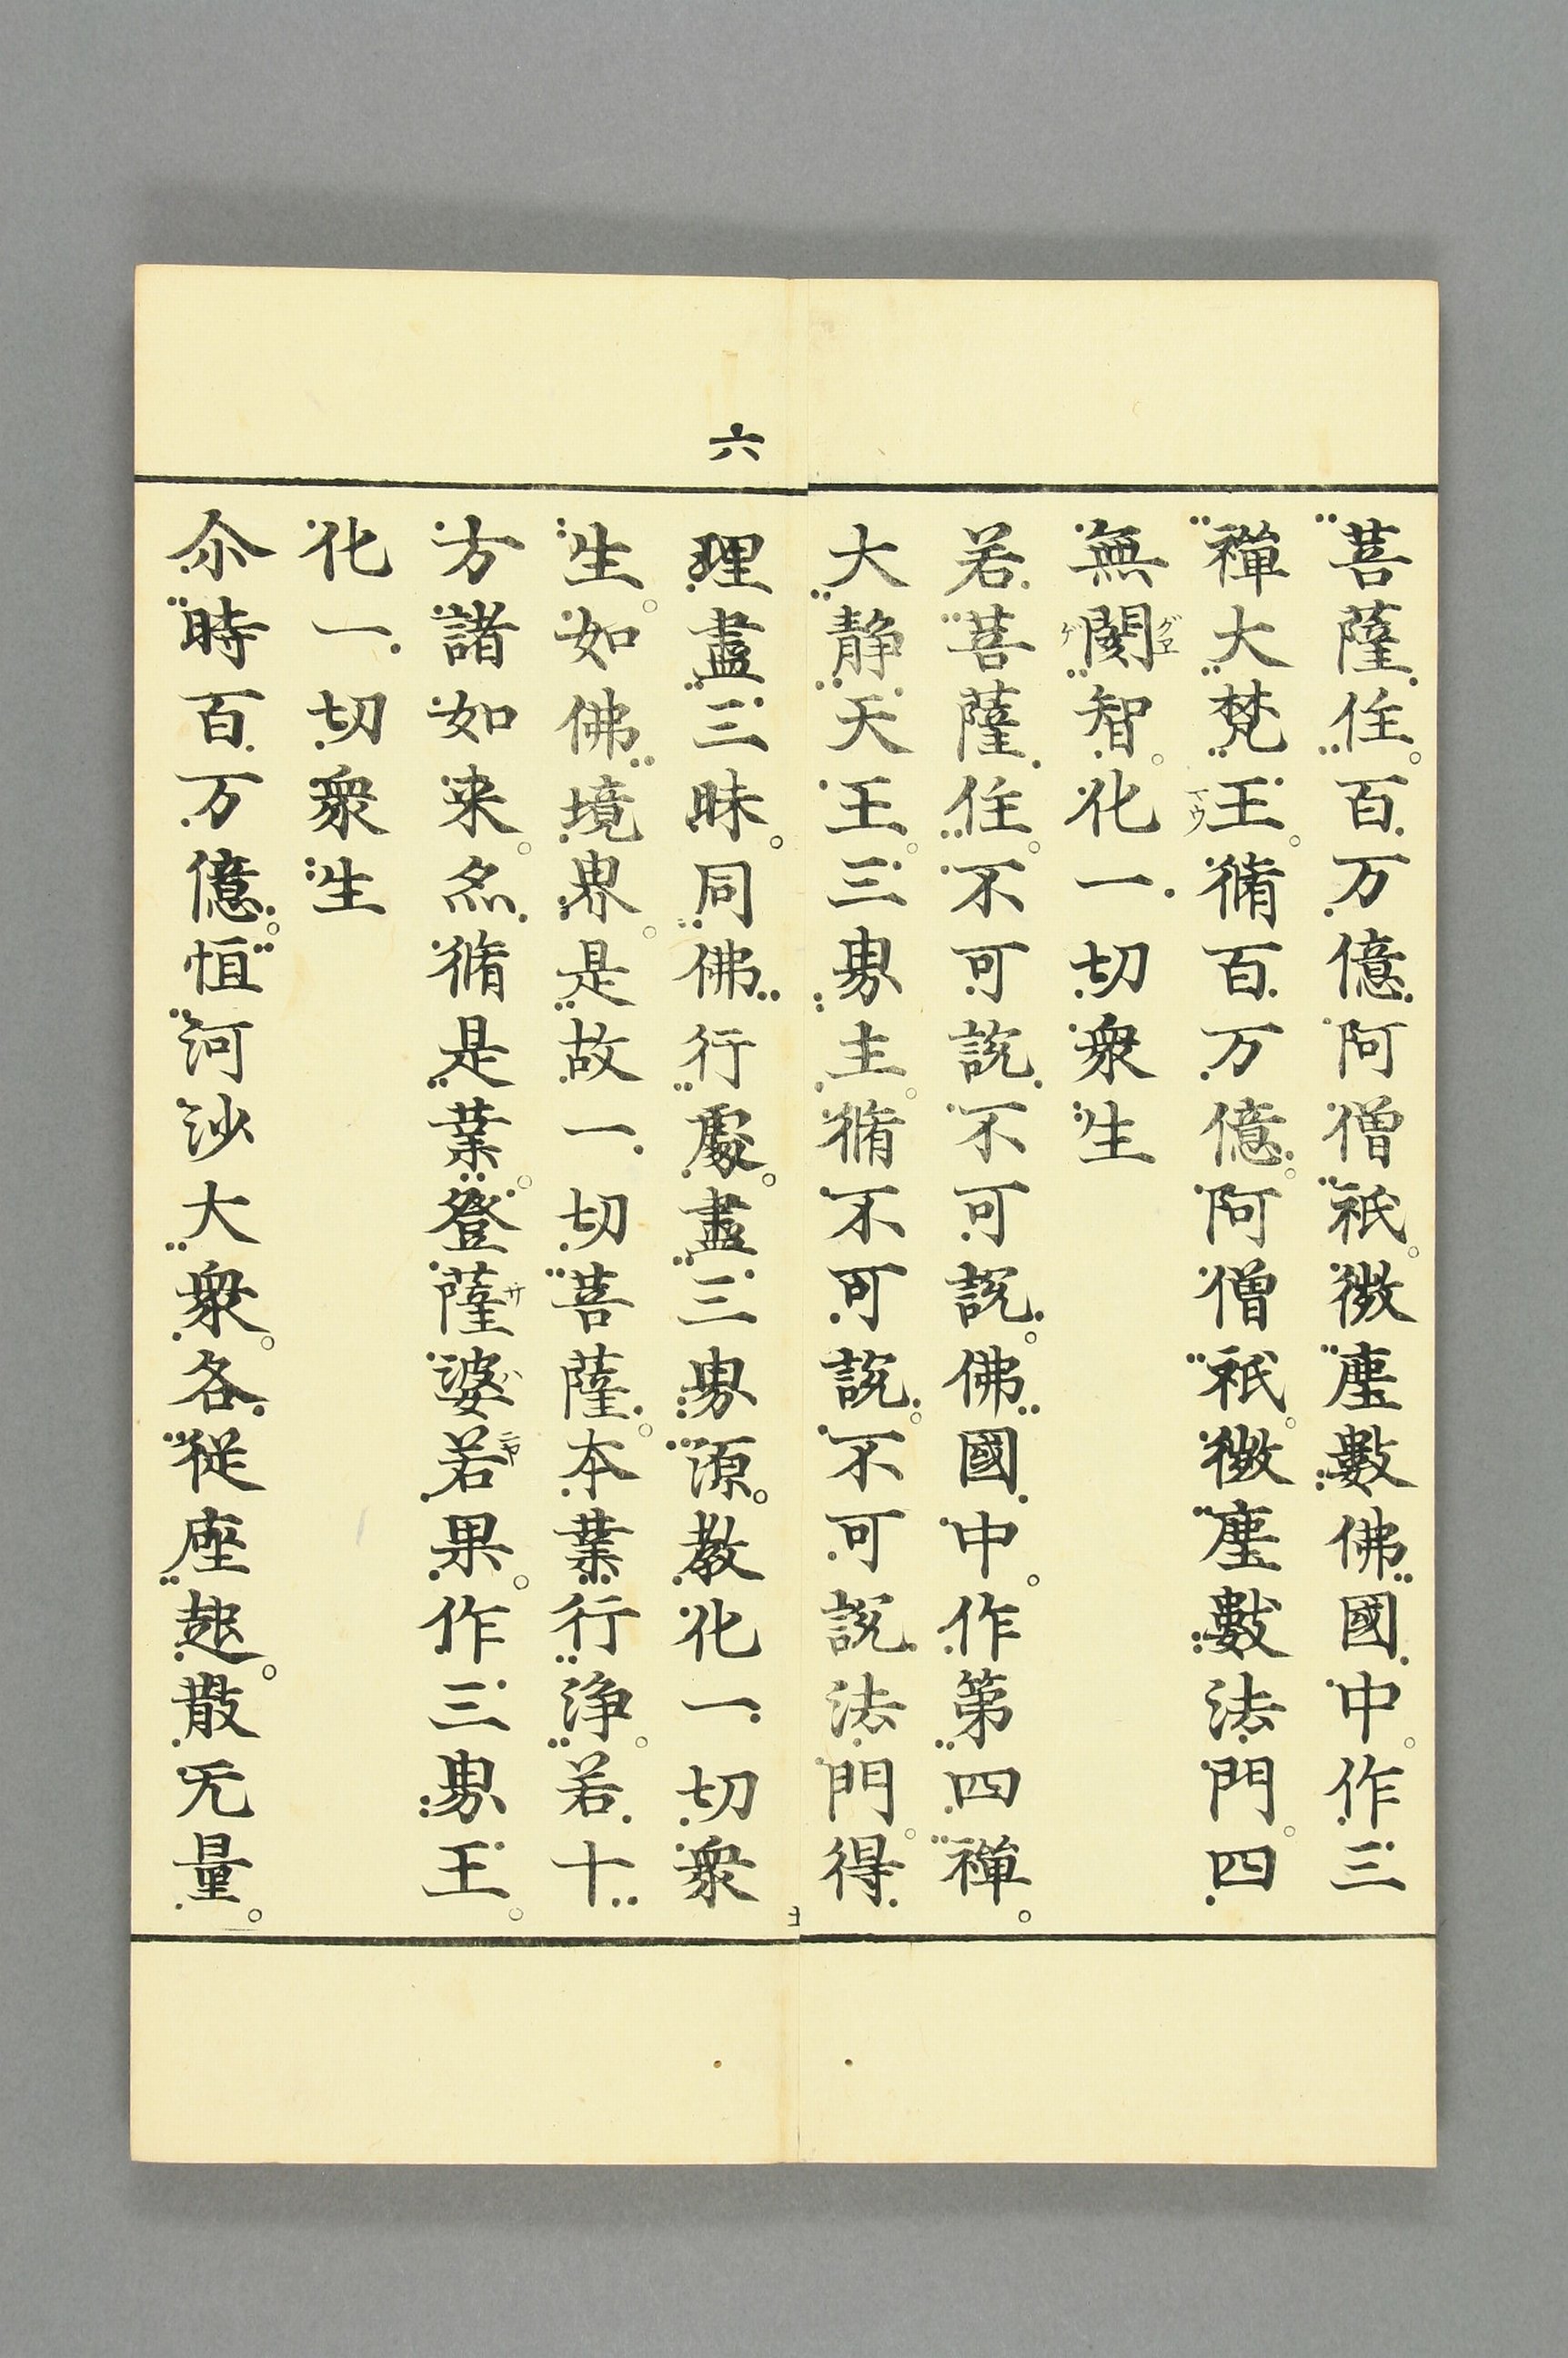 菩薩住百万億阿僧祇微塵數佛國中作三
禪大梵王脩百万億阿僧祇微塵數法門四
無閡智化一切衆生
若菩薩住不可說不可說佛國中作第四禪
大静天王三界主脩不可說不可說法門得
六
理盡三昧同佛行處盡三界源教化一切衆
生如佛境界是故一切菩薩本業行淨若十
方諸如来亦脩是業登薩婆若果作三界王
化一切衆生
尒時百万億恒河沙大衆各從座起散无量